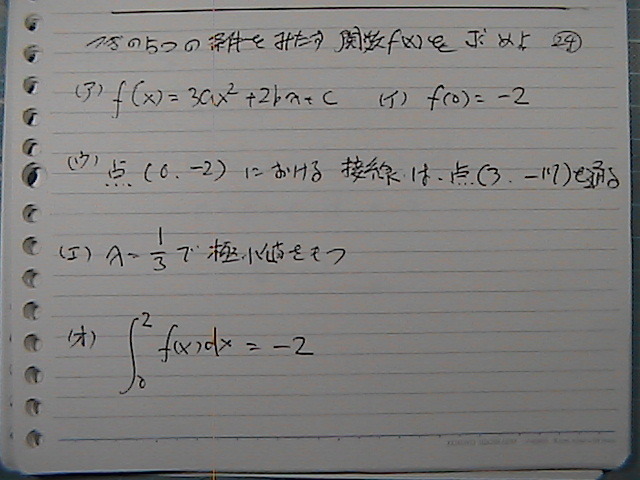 次の5つの条件をみたす関数f(x)を求めよ ㉔
(ア) f'(x)=3ax²+2bx+c (イ) f(0)=-2
(ウ) 点(0.-2)における接線は、点(3.-17)を通る
(エ) x=1/3で極小値をもつ
(オ) ∫₀² f(x)dx = -2